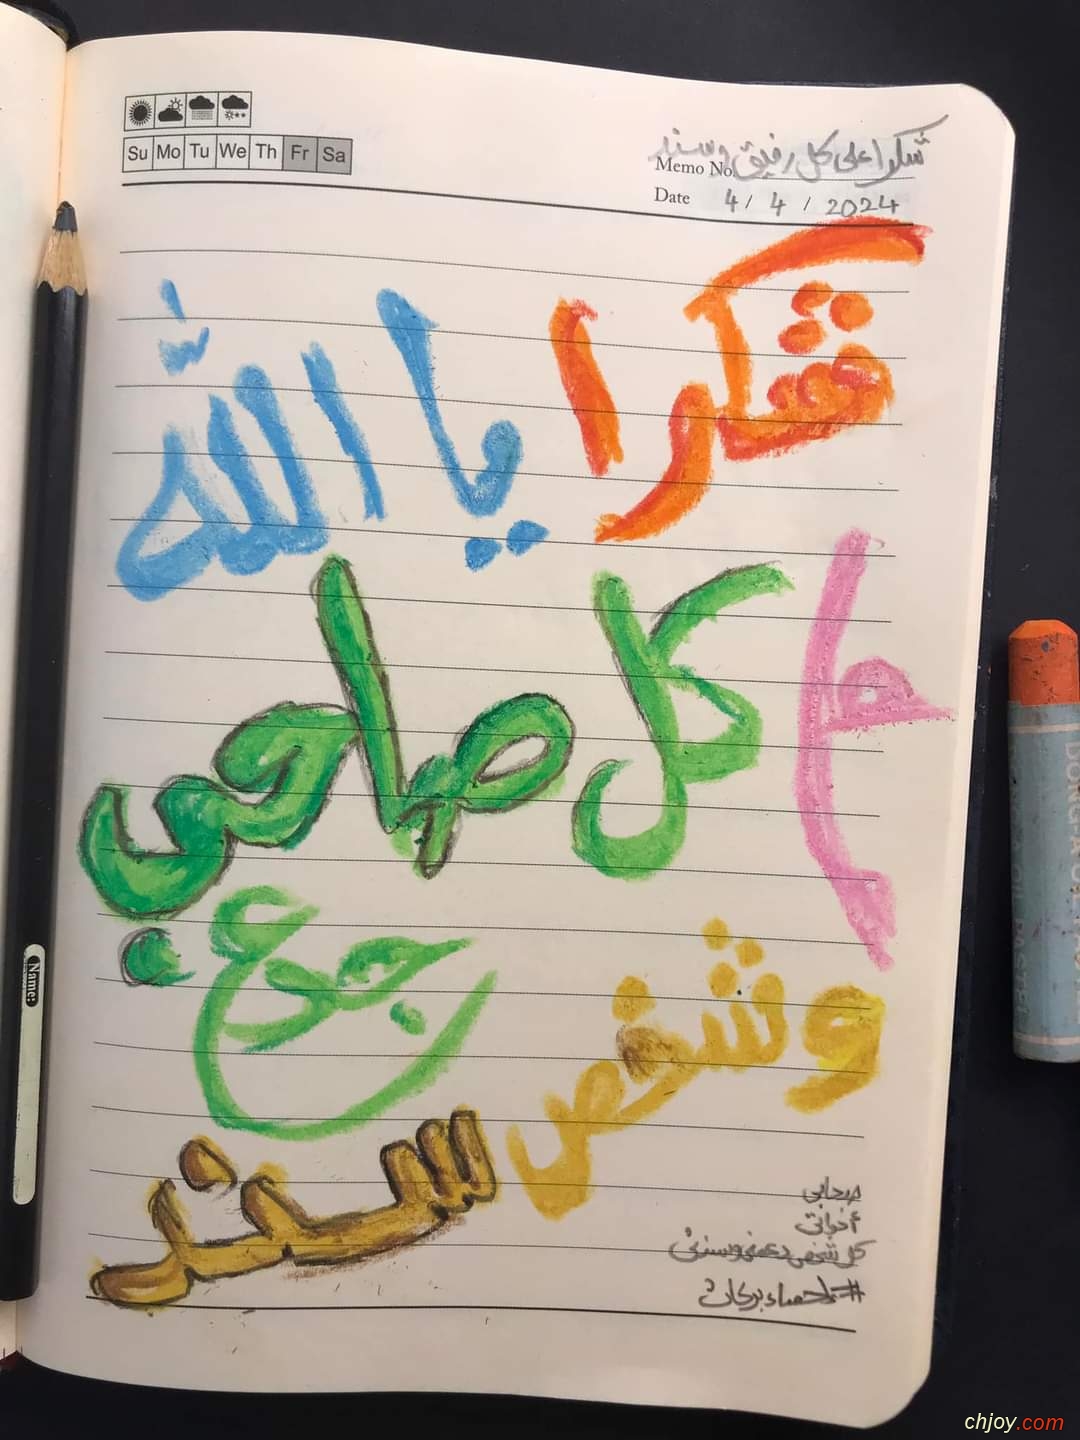 Su Mo Tu We Th Fr Sa
شكرا على كل رفيق وسند
Memo No.
Date 4 / 4 / 2024
شكرا يا الله
كل صاحب
جدع
وشخص
سند
صحابي
أخواتي
كل شخص دعمني وسندني
بركات
Name:
chjoy.com